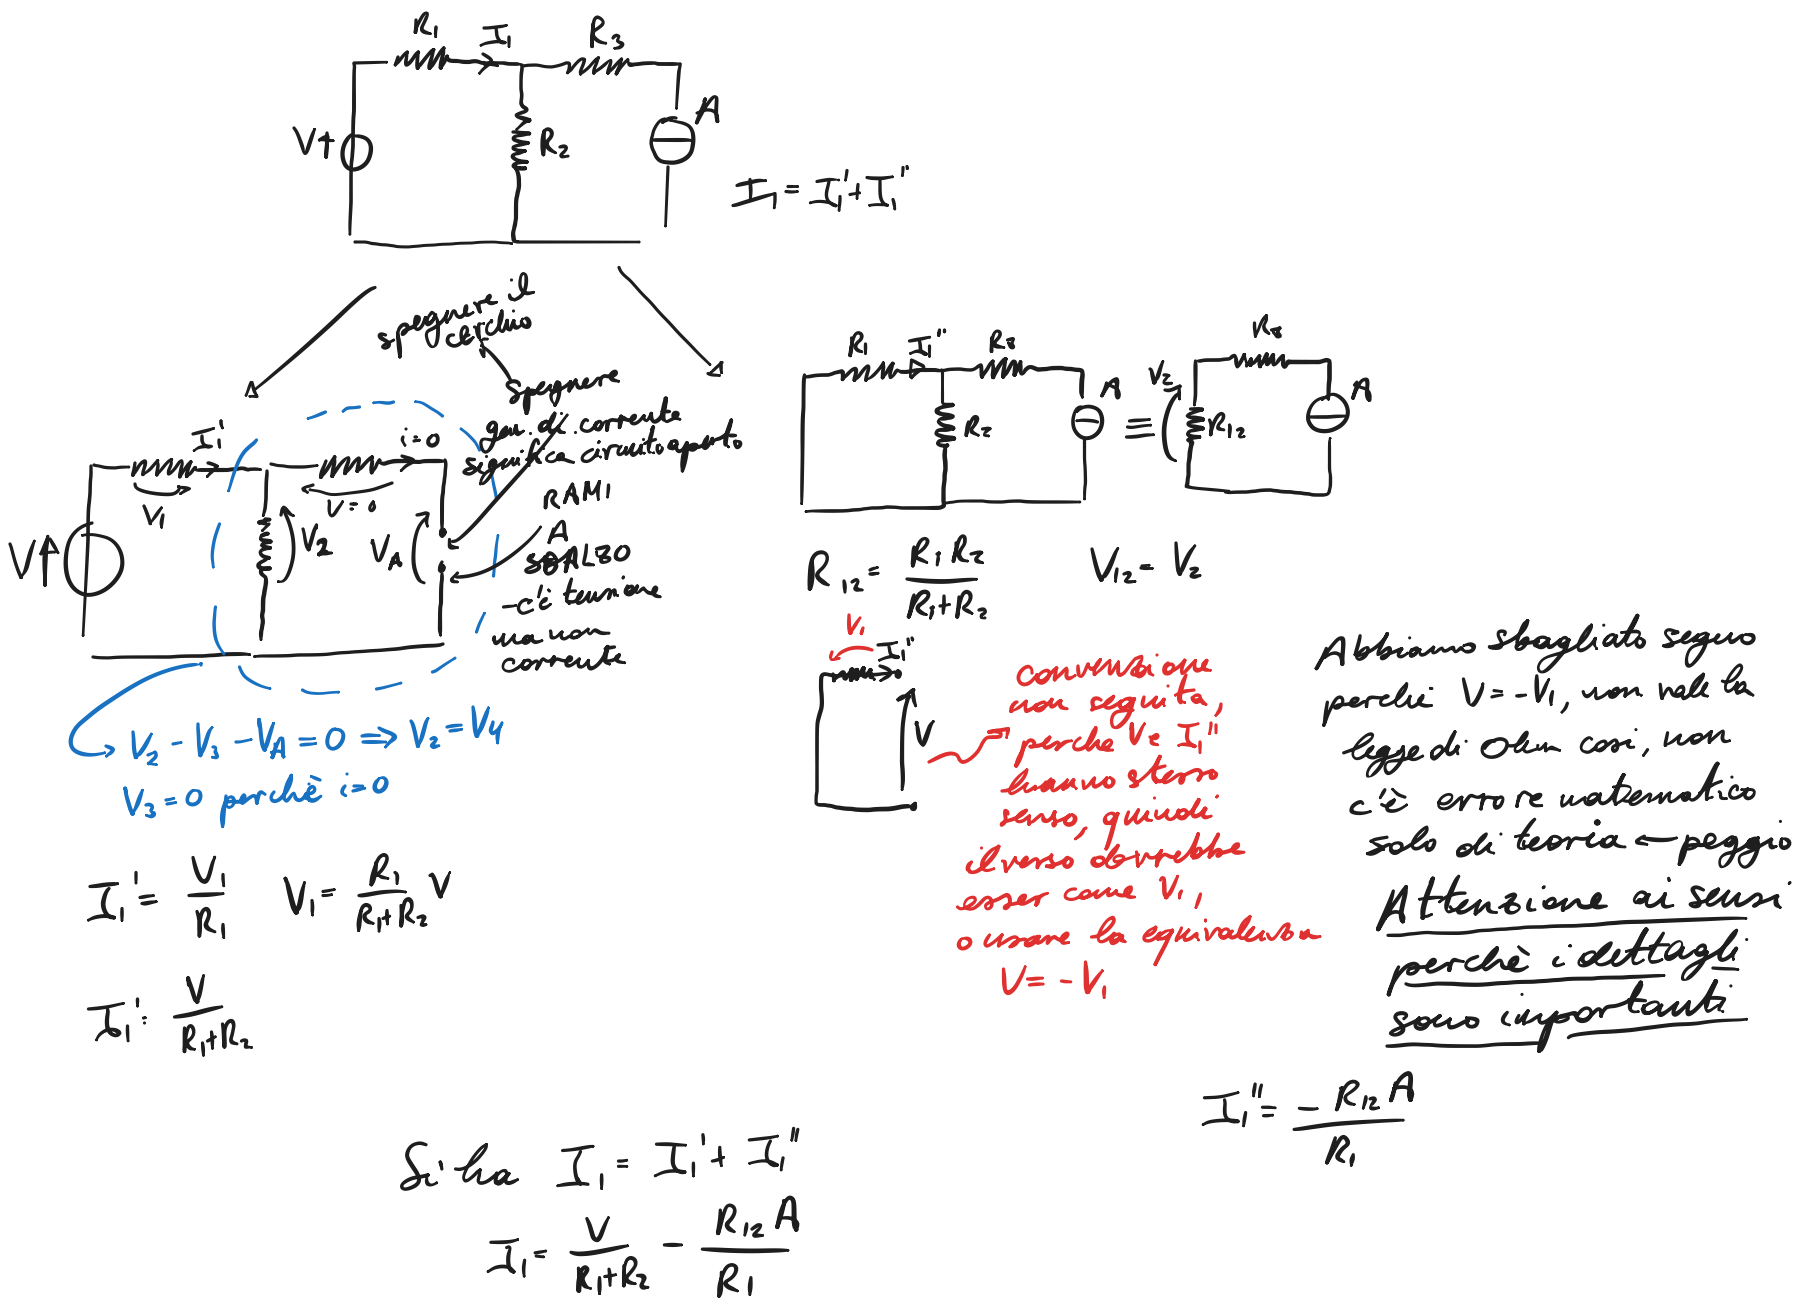 R₁ I₁ R₃
V R₂ A
I₁ = I₁' + I₁''
spegnere il
cerchio
spegnere
gen. di corrente
significa circuito aperto
I₁' i=0
V₁ V=0
V V₂ V_A
RAMI
A
SBALZO
-c'è tensione
ma non
corrente
V₂ - V₃ - V_A = 0 ⇒ V₂ = V₄
V₃ = 0 perchè i=0
I₁' = V₁/R₁ V₁ = R₁/(R₁+R₂) V
I₁' = V/(R₁+R₂)
R₁ I₁'' R₃ A
R₂
≡
V₂ R₃ A
R₁₂
R₁₂ = R₁ R₂/(R₁+R₂) V₁₂ = V₂
V₁ I₁''
V
convenzione
non seguita,
perche V e I₁''
hanno stesso
senso, quindi
il verso dovrebbe
esser come V₁,
o usare la equivalenza
V = -V₁
Abbiamo sbagliato segno
perchè V = -V₁, non vale la
legge di Ohm cosi, non
c'è errore matematico
solo di teoria ← peggio
Attenzione ai sensi
perchè i dettagli
sono importanti
I₁'' = - R₁₂ A/R₁
Si ha I₁ = I₁' + I₁''
I₁ = V/(R₁+R₂) - R₁₂ A/R₁